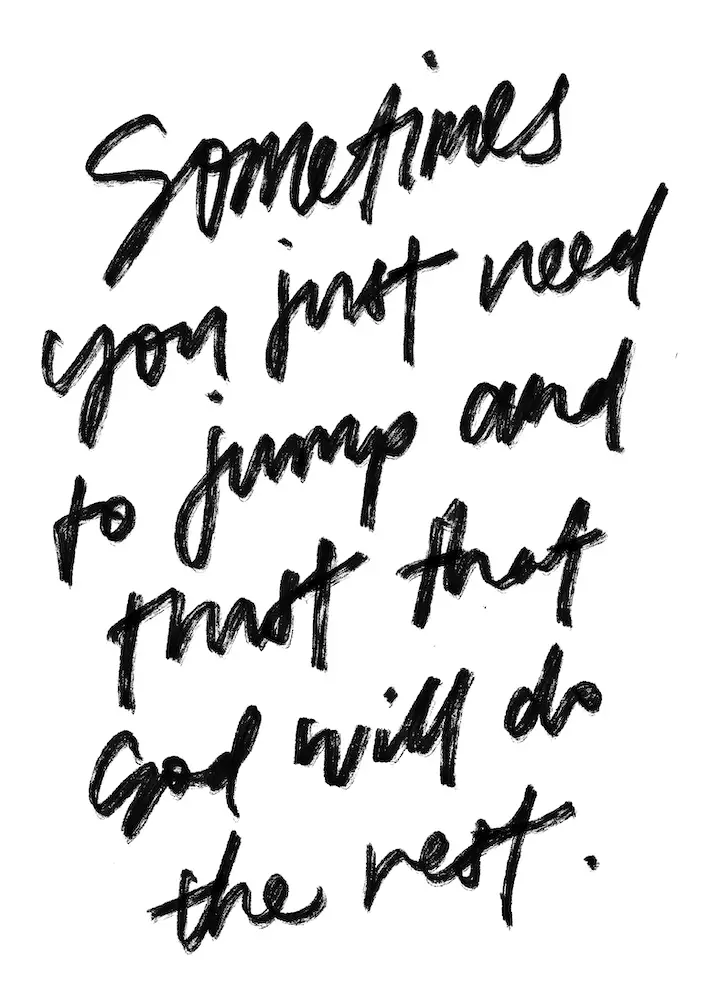 Sometimes
you just need
to jump and
trust that
God will do
the rest.